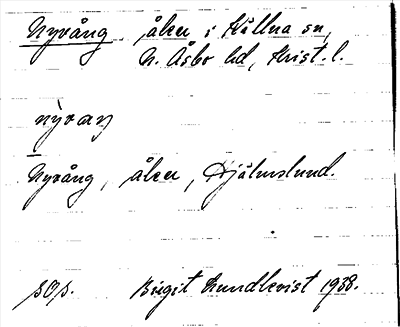 Nyvång åker i Källna sn,
N. Åsbo hd, Krist. l.
nỳvaŋ
Nyvång, åker, Hjälmslund.
sOp. Birgit Lundkvist 1938.